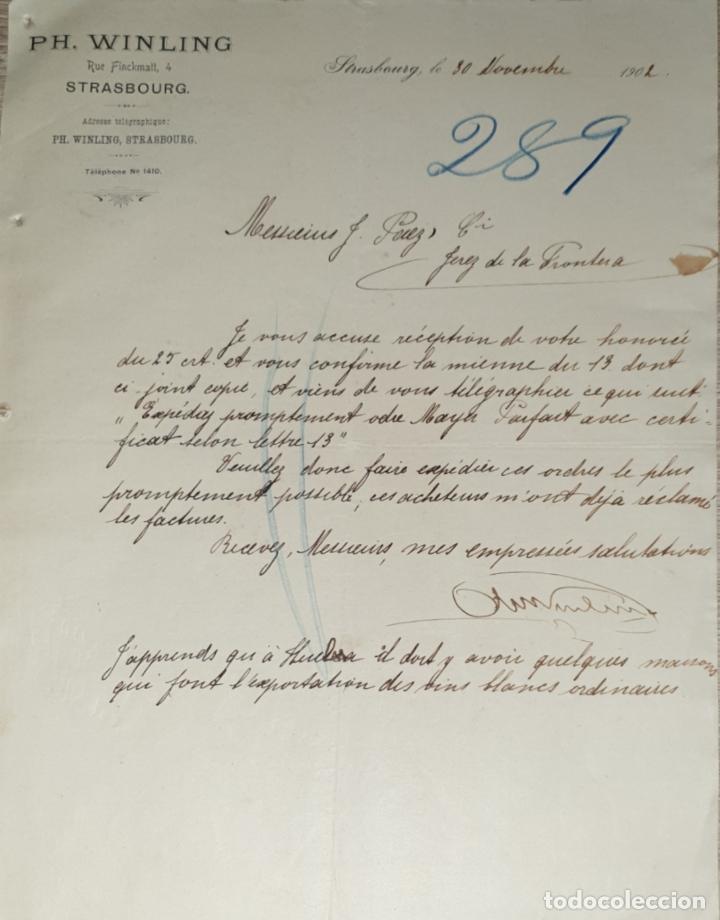 PH. WINLING
Rue Finckmatt, 4
STRASBOURG.
Adresse télégraphique:
PH. WINLING, STRASBOURG.
Téléphone No 1410.
Strasbourg, le 30 Novembre 1902.
289
Messieurs J. Perez Ci
Jerez de la Frontera
Je vous accuse réception de votre honorée
du 25 crt. et vous confirme la mienne du 13 dont
ci-joint copie, et viens de vous télégraphier ce qui suit
"Expédiez promptement odre Mayer Parfait avec certi-
ficat selon lettre 13"
Veuillez donc faire expédier ces ordres le plus
promptement possible, ces acheteurs m'ont déjà réclamé
les factures.
Recevez, Messieurs, mes empressées salutations
J'apprends qu'à il doit y avoir quelques maisons
qui font l'exportation des vins blancs ordinaires
todocoleccion